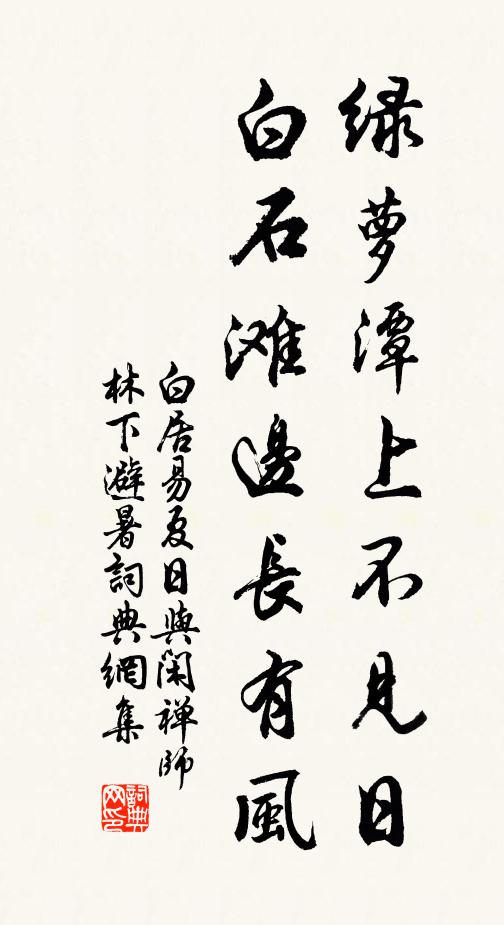 绿萝潭上不见日
白石滩邊長有風
白居易夏日與閑禅師
林下避暑詞典網集
詞典
网印